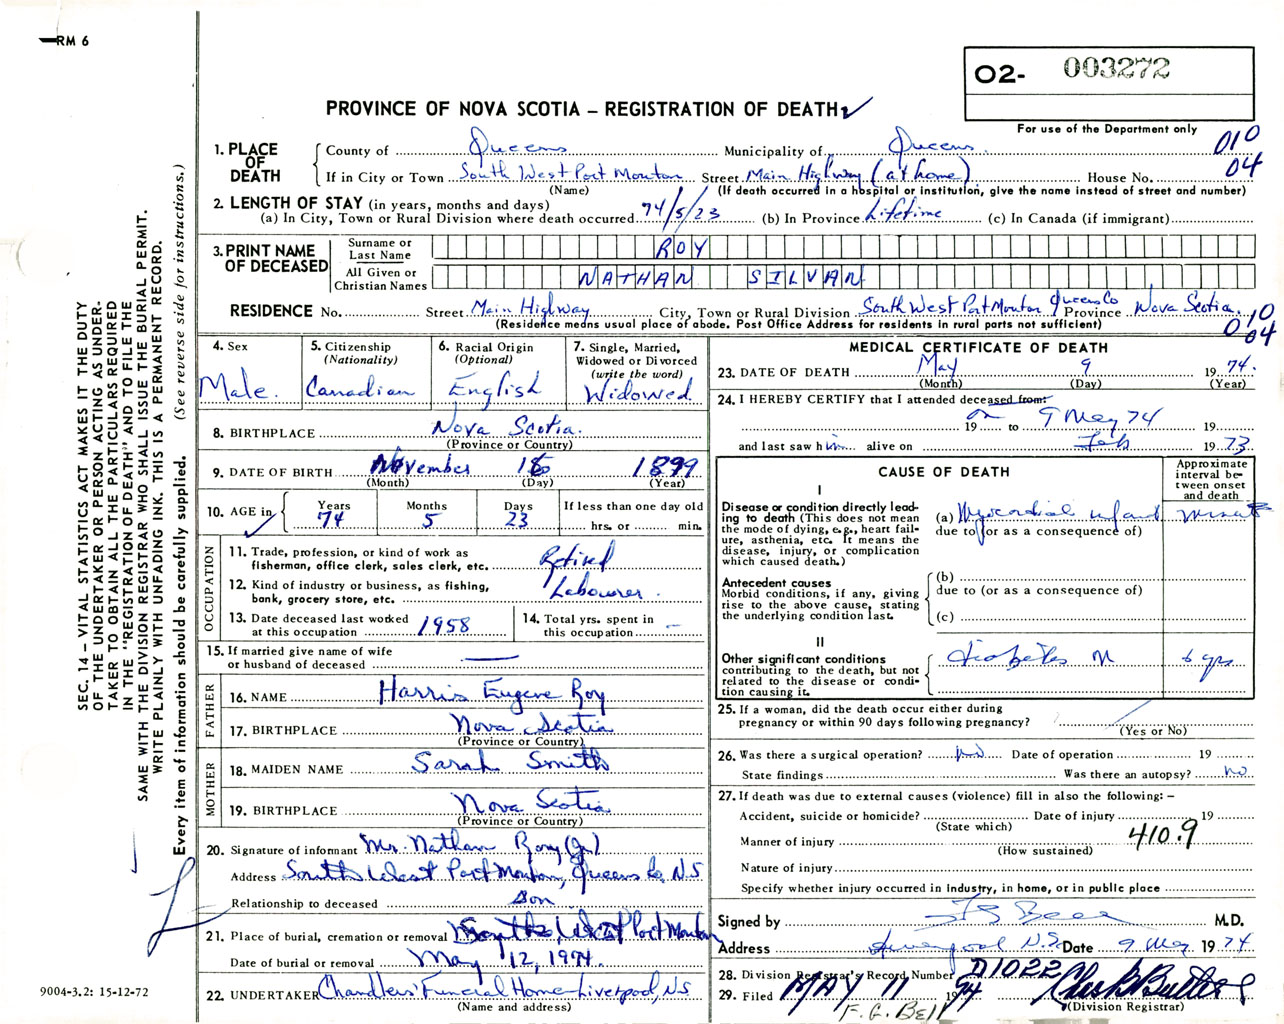 RM 6
02- 003272
For use of the Department only
PROVINCE OF NOVA SCOTIA – REGISTRATION OF DEATH
010
04
1. PLACE OF DEATH
County of Queens Municipality of Queens
If in City or Town South West Port Mouton Street Main Highway (at home) House No.
(Name) (If death occurred in a hospital or institution, give the name instead of street and number)
2. LENGTH OF STAY (in years, months and days)
(a) In City, Town or Rural Division where death occurred 74/5/23 (b) In Province Lifetime (c) In Canada (if immigrant)
3. PRINT NAME OF DECEASED
Surname or Last Name ROY
All Given or Christian Names NATHAN SILVAN
RESIDENCE No. Street Main Highway City, Town or Rural Division South West Port Mouton Queens Co Province Nova Scotia
(Residence means usual place of abode. Post Office Address for residents in rural parts not sufficient)
010
04
4. Sex Male
5. Citizenship (Nationality) Canadian
6. Racial Origin (Optional) English
7. Single, Married, Widowed or Divorced (write the word) Widowed
8. BIRTHPLACE Nova Scotia
(Province or Country)
9. DATE OF BIRTH November 1899
(Month) (Day) (Year)
10. AGE in Years 74 Months 5 Days 23 If less than one day old hrs. or min.
OCCUPATION
11. Trade, profession, or kind of work as fisherman, office clerk, sales clerk, etc. Retired
12. Kind of industry or business, as fishing, bank, grocery store, etc. Labourer
13. Date deceased last worked at this occupation 1958
14. Total yrs. spent in this occupation –
15. If married give name of wife or husband of deceased —
FATHER
16. NAME Harris Eugene Roy
17. BIRTHPLACE Nova Scotia
(Province or Country)
MOTHER
18. MAIDEN NAME Sarah Smith
19. BIRTHPLACE Nova Scotia
(Province or Country)
20. Signature of informant Mr. Nathan Roy (Jr)
Address South West Port Mouton, Queens Co, N.S
Relationship to deceased Son
21. Place of burial, cremation or removal South West Port Mouton
Date of burial or removal May 12, 1974.
22. UNDERTAKER Chandlers' Funeral Home Liverpool, NS
(Name and address)
MEDICAL CERTIFICATE OF DEATH
23. DATE OF DEATH May 9 1974.
(Month) (Day) (Year)
24. I HEREBY CERTIFY that I attended deceased from:
on 9 May 74
19 to 19
and last saw him alive on Feb 1973
CAUSE OF DEATH
Approximate interval between onset and death
I
Disease or condition directly leading to death (This does not mean the mode of dying, e.g., heart failure, asthenia, etc. It means the disease, injury, or complication which caused death.)
(a) Myocardial infarct minutes
due to (or as a consequence of)
Antecedent causes
Morbid conditions, if any, giving rise to the above cause, stating the underlying condition last.
(b)
due to (or as a consequence of)
(c)
II
Other significant conditions contributing to the death, but not related to the disease or condition causing it.
Diabetes M yrs
25. If a woman, did the death occur either during pregnancy or within 90 days following pregnancy?
(Yes or No)
26. Was there a surgical operation? no Date of operation 19
State findings Was there an autopsy? no
27. If death was due to external causes (violence) fill in also the following: –
Accident, suicide or homicide? Date of injury 19
(State which)
Manner of injury 410.9
(How sustained)
Nature of injury
Specify whether injury occurred in industry, in home, or in public place
Signed by M.D.
Address Liverpool N.S. Date 9 May 1974
28. Division Registrar's Record Number D1022
29. Filed MAY 11 1974
(Division Registrar)
F. G. Bell
SEC. 14 – VITAL STATISTICS ACT MAKES IT THE DUTY
OF THE UNDERTAKER OR PERSON ACTING AS UNDER-
TAKER TO OBTAIN ALL THE PARTICULARS REQUIRED
IN THE "REGISTRATION OF DEATH" AND TO FILE THE
SAME WITH THE DIVISION REGISTRAR WHO SHALL ISSUE THE BURIAL PERMIT.
WRITE PLAINLY WITH UNFADING INK. THIS IS A PERMANENT RECORD.
Every item of information should be carefully supplied. (See reverse side for instructions.)
9004-3.2: 15-12-72